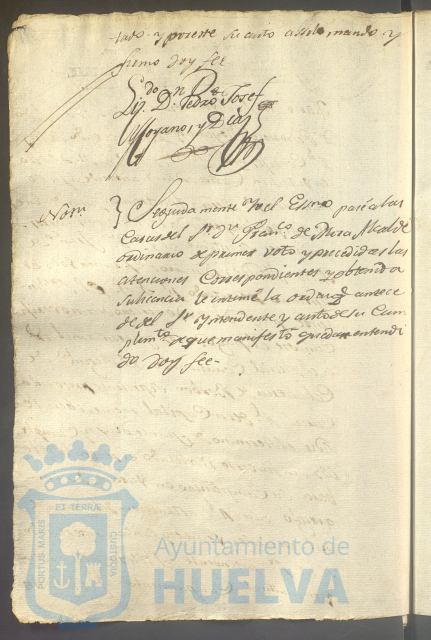 tado y por este su auto assi lo mando y
firmo doy fee
Lizdo Dn Pedro Josef
Moyano, y Diaz
Notn
Seguidamente Yo el Essno pasé a las
Casas del Sr Dn Franco de Mora Alcalde
ordinario de primer voto y precedidas las
atenciones Correspondientes y obtenida
su licencia le intimé la orden q antece
de del Sr Yntendente y auto de su Cum
plimto de que manifestó quedar entendi
do doy fee-
ET TERRÆ
PORTUS MARIS
CUSTODIA
Ayuntamiento de
HUELVA